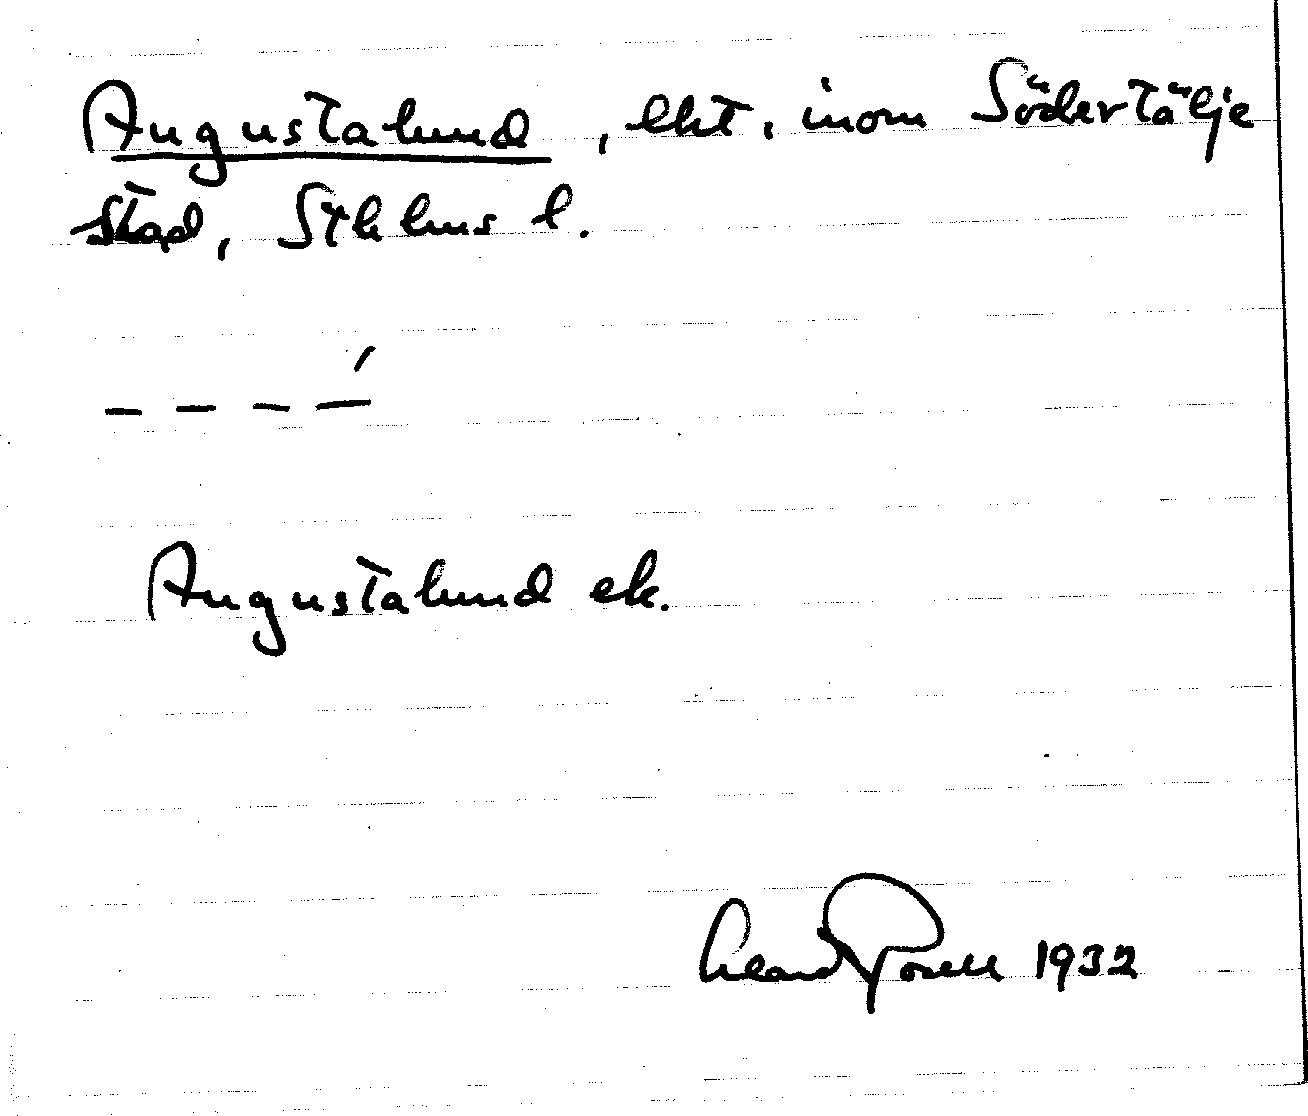 Augustalund, lht. inom Södertälje
stad, Sthlms l.
– – – –́
Augustalund ek.
1932